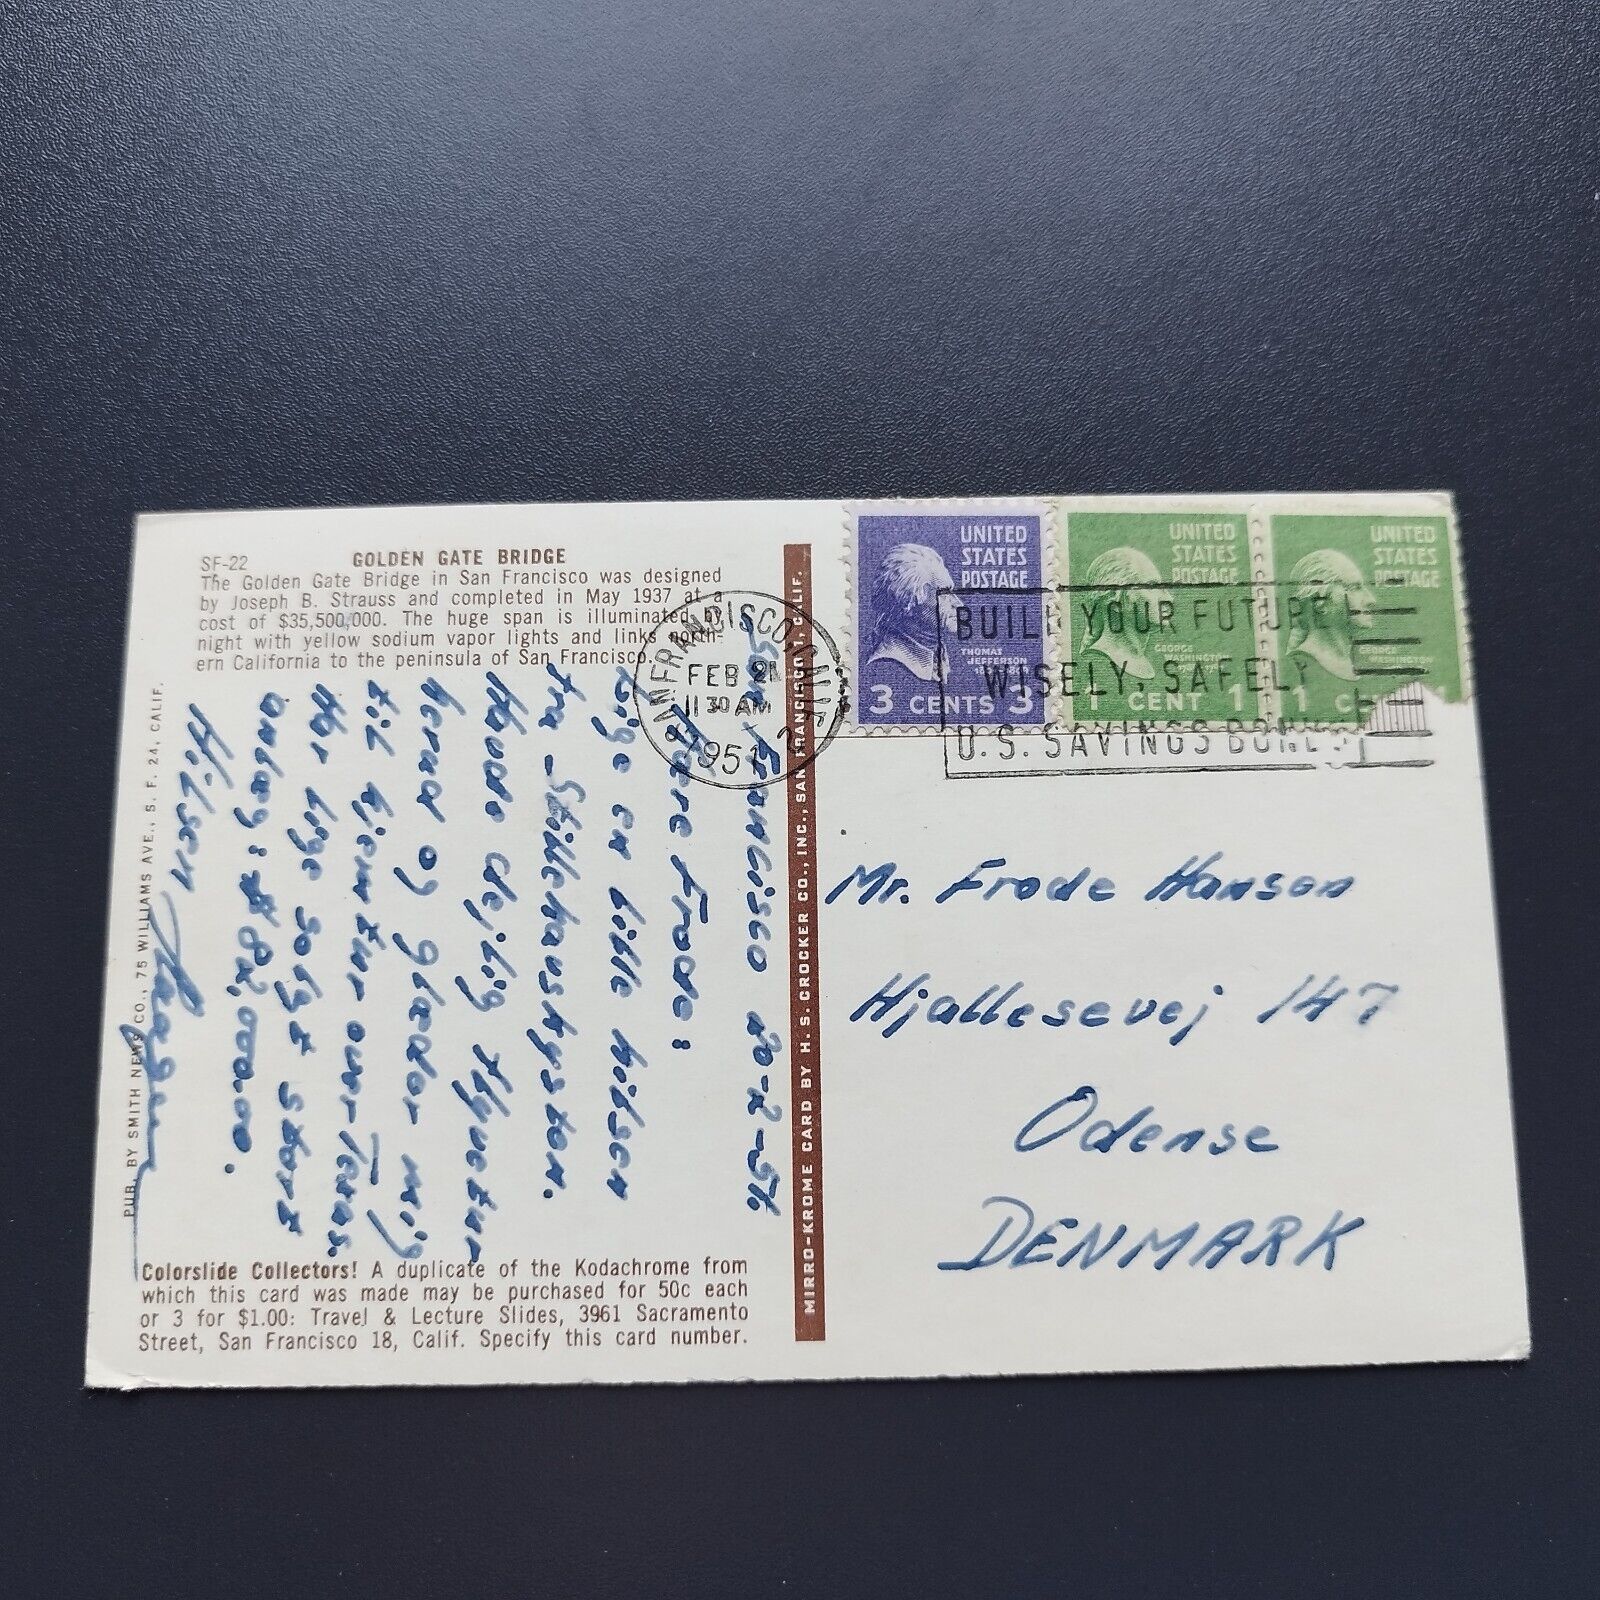 SF-22 GOLDEN GATE BRIDGE
The Golden Gate Bridge in San Francisco was designed
by Joseph B. Strauss and completed in May 1937 at a
cost of $35,500,000. The huge span is illuminated by
night with yellow sodium vapor lights and links north-
ern California to the peninsula of San Francisco.
San Francisco 20-2-51
Kære Frode:
Lige en lille hilsen
fra Stillehavskysten.
Havde dejlig flyvetur
herud og glæder mig
til hjemtur over Texas.
Har lige solgt stort
anlæg:
Hilsen
PUB. BY SMITH NEWS CO., 75 WILLIAMS AVE., S. F. 24, CALIF.
Colorslide Collectors! A duplicate of the Kodachrome from
which this card was made may be purchased for 50c each
or 3 for $1.00: Travel & Lecture Slides, 3961 Sacramento
Street, San Francisco 18, Calif. Specify this card number.
MIRRO-KROME CARD BY H. S. CROCKER CO., INC., SAN FRANCISCO 1, CALIF.
SAN FRANCISCO, CALIF.
FEB 21
11 30 AM
1951
UNITED
STATES
POSTAGE
THOMAS
JEFFERSON
3 CENTS 3
UNITED
STATES
POSTAGE
GEORGE
WASHINGTON
1 CENT 1
UNITED
STATES
POSTAGE
GEORGE
WASHINGTON
1 C
BUILD YOUR FUTURE
WISELY, SAFELY
U.S. SAVINGS BONDS
Mr. Frode Hansen
Hjallesevej 147
Odense
DENMARK